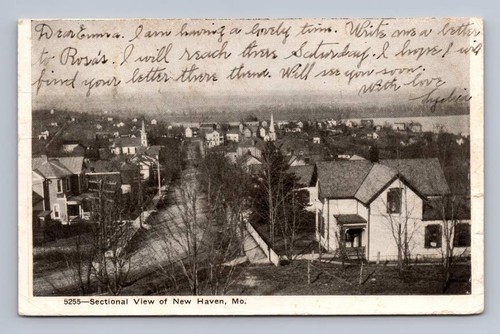 Dear Emma. I am having a lovely time. Write me a letter
to Rosa's. I will reach there Saturday. I hope I will
find your letter there then. Will see you soon.
With love
5255—Sectional View of New Haven, Mo.